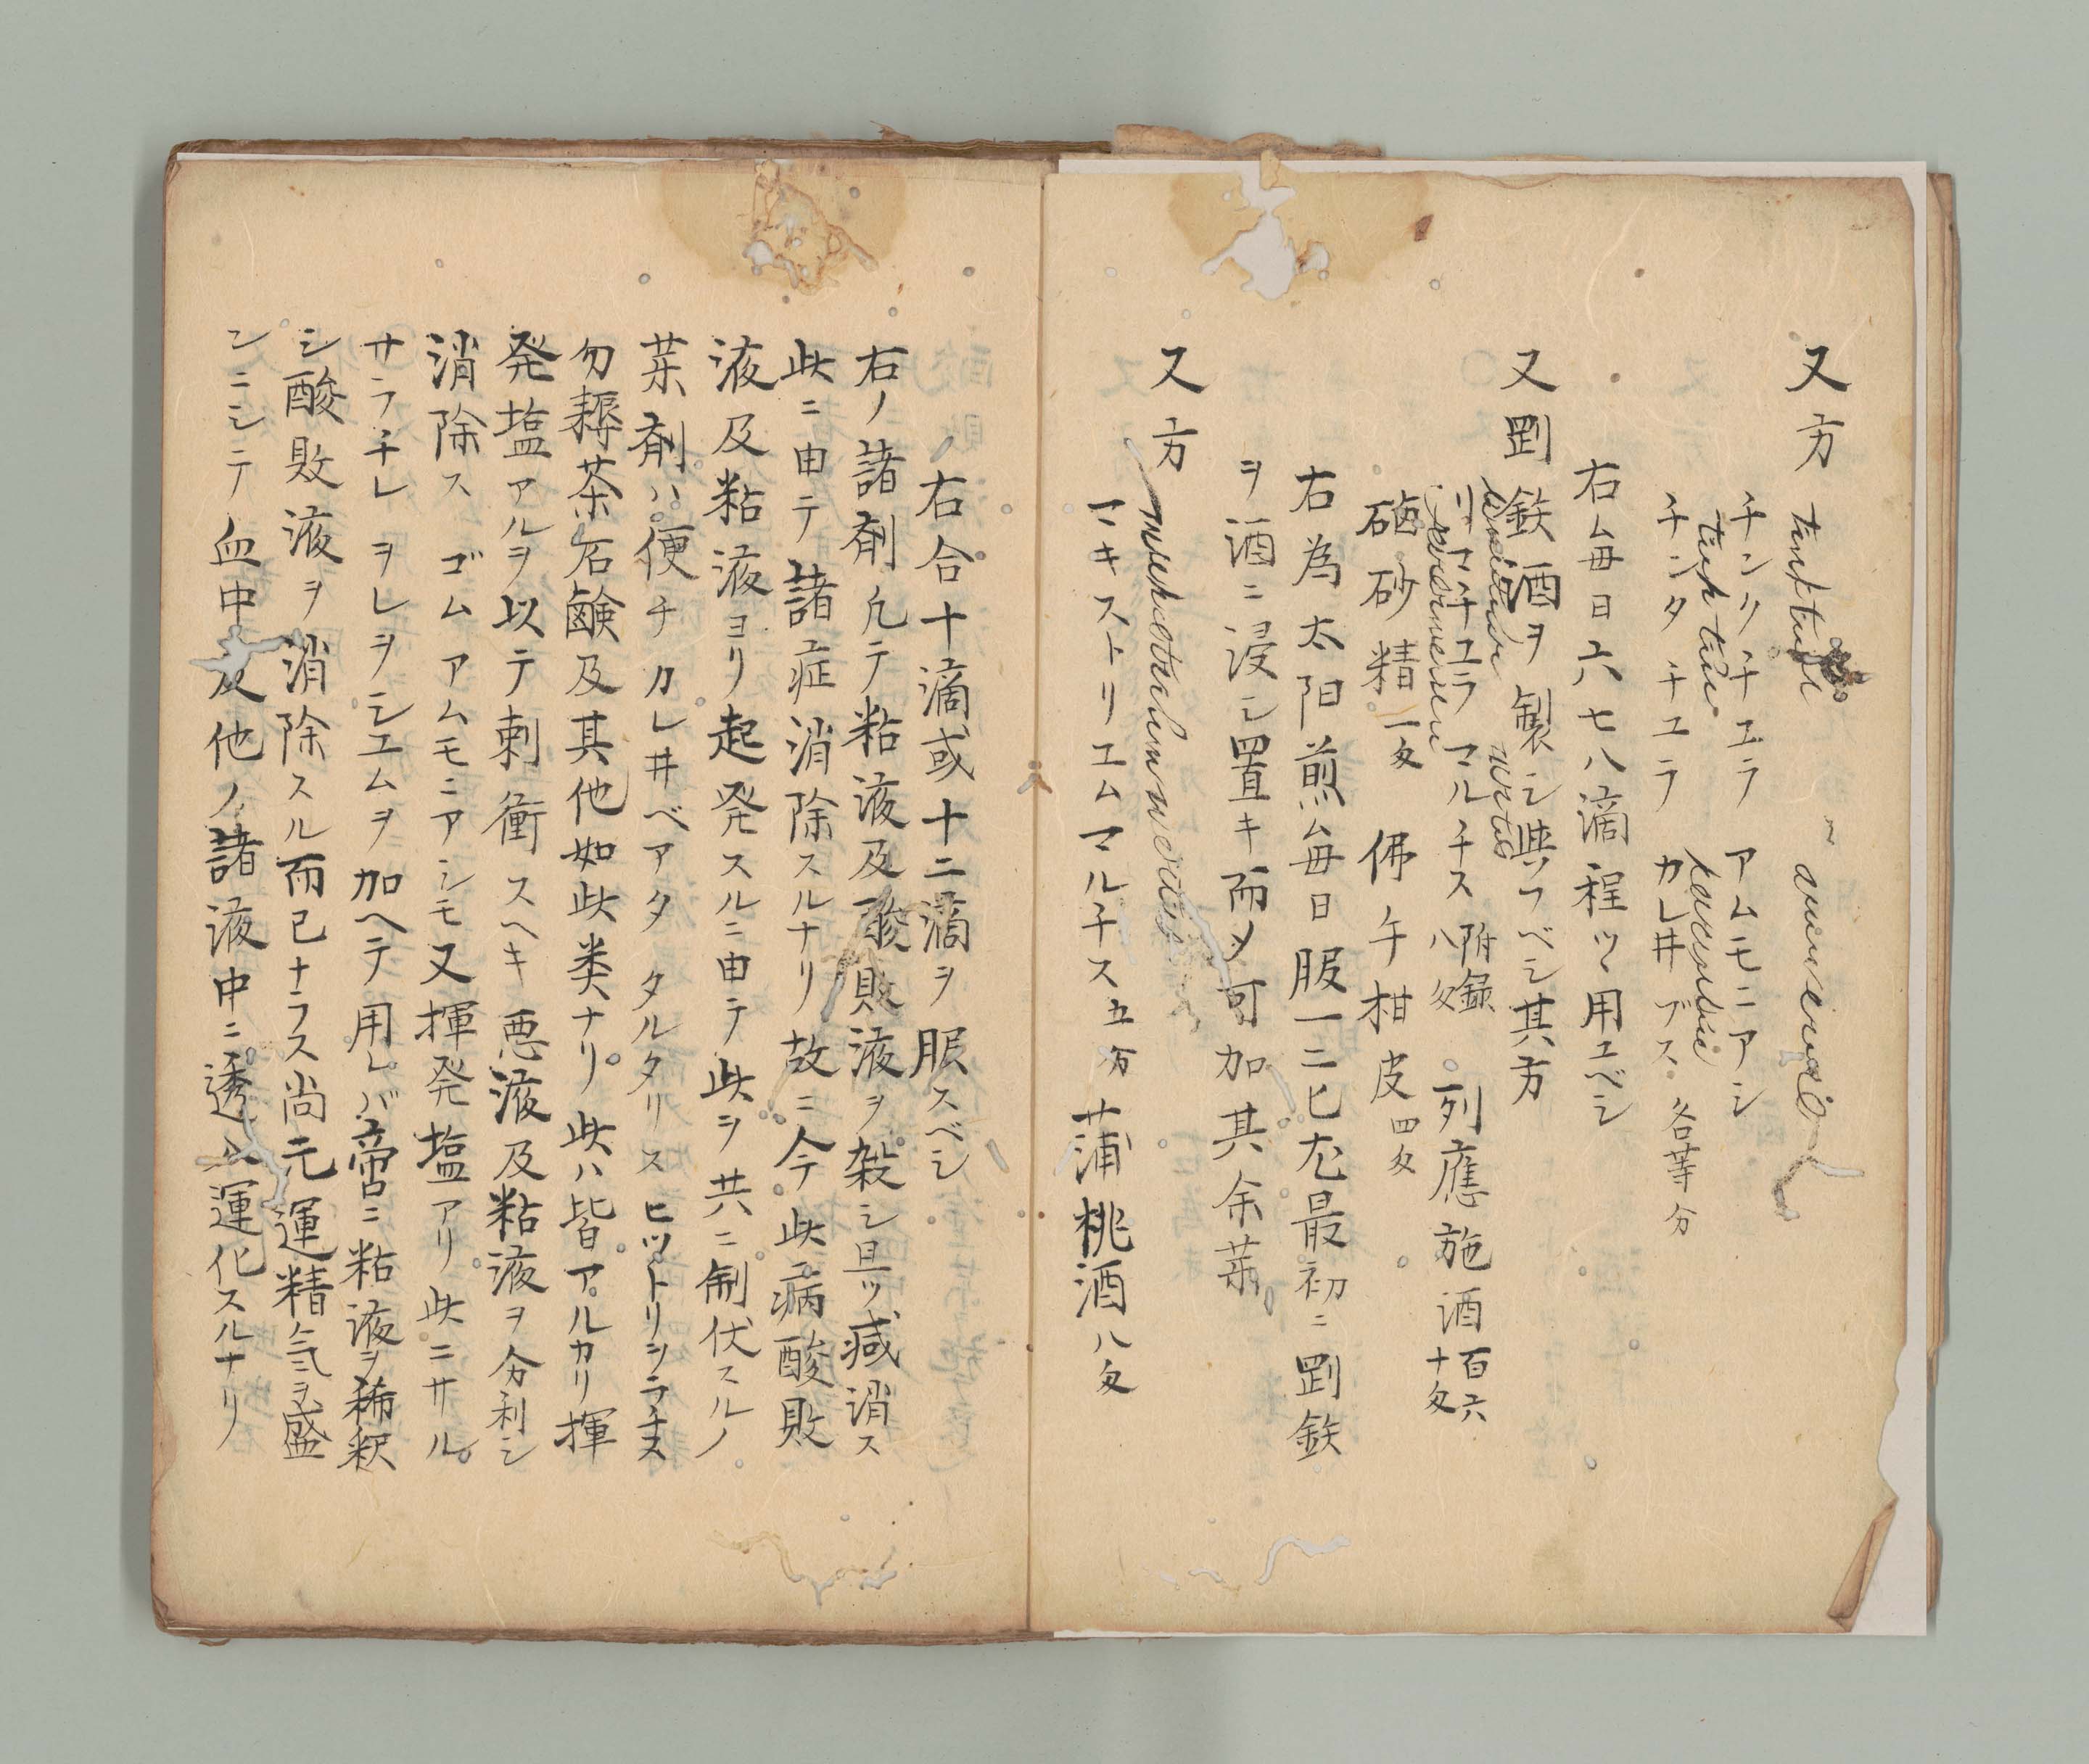 又方
チンクチユラ　アムモニアシ
チンタチユラ　カレ井ブス　各等分
右ム毎日六七八滴程ツヽ用ユベシ
又罡鉄酒ヲ製シ與フベシ其方
リマチユラマルチス　附録　八匁　列應施酒　百六十匁
硇砂精　一匁　佛午柑皮　四匁
右為太阳煎ム毎日服一二匕尤最初ニ罡鉄
ヲ酒ニ浸シ置キ而メ可加其余薬
又方
エキストリエムマルチス　五分　蒲桃酒　八匁
右合十滴或十二滴ヲ服スベシ
右ノ諸剤凢テ粘液及酸敗液ヲ殺シ且ツ減消ス
此ニ由テ諸症消除スルナリ故ニ今此病酸敗
液及粘液ヨリ起発スルニ由テ此ヲ共ニ制伏スルノ
薬剤ハ便チカレ井ベアタタルタリスヒットリシラチス
勿耨茶石鹸及其他如此类ナリ此ハ皆アルカリ揮
発塩アルヲ以テ刺衝スヘキ悪液及粘液ヲ分利シ
消除スゴムアムモニアシモ又揮発塩アリ此ニサル
サラチレヲレヲシエムヲ加ヘテ用レバ啻ニ粘液ヲ稀釈
シ酸敗液ヲ消除スル而已ナラス尚元運精気ヲ盛
ンニシテ血中及他ノ諸液中ニ透入運化スルナリ